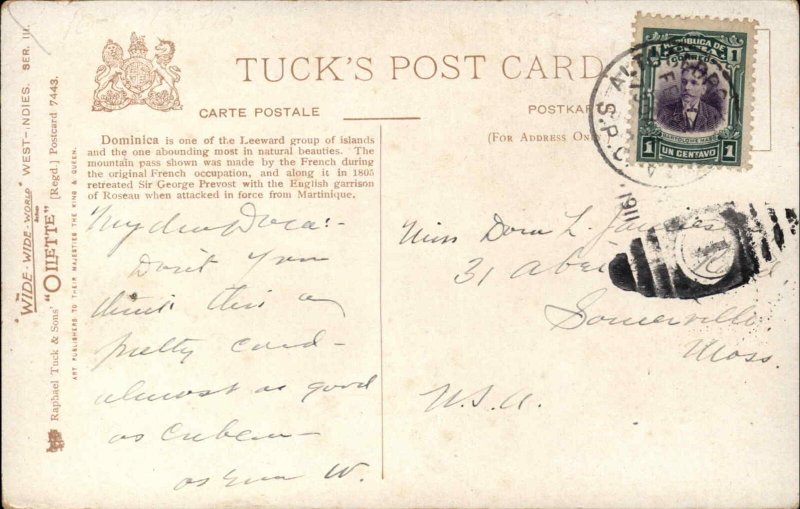 TUCK'S POST CARD
CARTE POSTALE
POSTKARTE
(FOR ADDRESS ONLY
Dominica is one of the Leeward group of islands
and the one abounding most in natural beauties. The
mountain pass shown was made by the French during
the original French occupation, and along it in 1805
retreated Sir George Prevost with the English garrison
of Roseau when attacked in force from Martinique.
My dear Dora:-
Don't you
think this a
pretty card-
almost as good
as Cuban-
as ever W.
Miss Dora L.
31
Somerville
Mass.
U.S.A.
REPUBLICA DE
CORREOS
1 1
BARTOLOME MASO
1 UN CENTAVO 1
ALTO
1911
"THE WIDE-WIDE-WORLD" WEST-INDIES. SER. III.
Raphael Tuck & Sons' "OILETTE" [Regd.] Postcard 7443.
ART PUBLISHERS TO THEIR MAJESTIES THE KING & QUEEN.